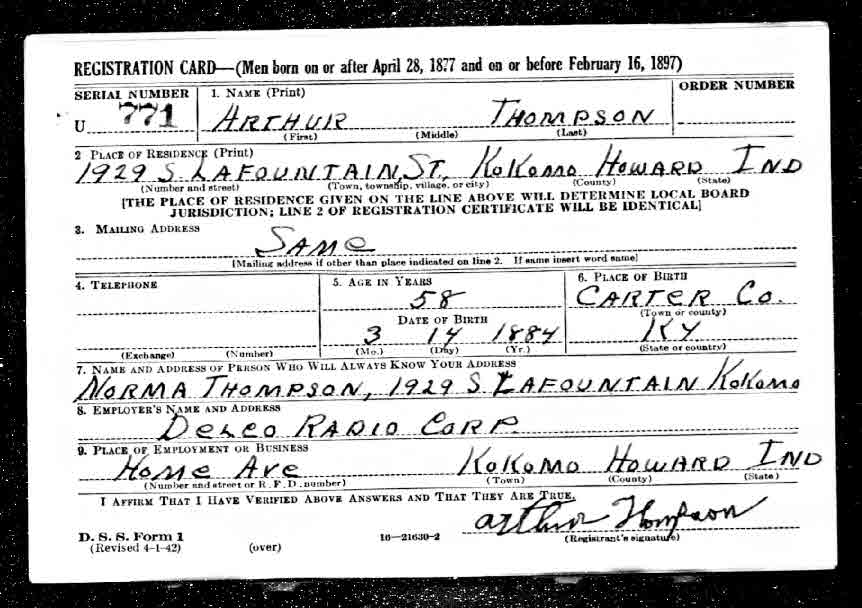 REGISTRATION CARD—(Men born on or after April 28, 1877 and on or before February 16, 1897)
SERIAL NUMBER 1. NAME (Print) ORDER NUMBER
U 771 ARTHUR THOMPSON
(First) (Middle) (Last)
2 PLACE OF RESIDENCE (Print)
1929 S LAFOUNTAIN ST, KOKOMO HOWARD IND
(Number and street) (Town, township, village, or city) (County) (State)
[THE PLACE OF RESIDENCE GIVEN ON THE LINE ABOVE WILL DETERMINE LOCAL BOARD
JURISDICTION; LINE 2 OF REGISTRATION CERTIFICATE WILL BE IDENTICAL]
3. MAILING ADDRESS
SAME
[Mailing address if other than place indicated on line 2. If same insert word same]
4. TELEPHONE 5. AGE IN YEARS 6. PLACE OF BIRTH
58 CARTER CO.
(Town or county)
DATE OF BIRTH
3 14 1884 KY
(Exchange) (Number) (Mo.) (Day) (Yr.) (State or country)
7. NAME AND ADDRESS OF PERSON WHO WILL ALWAYS KNOW YOUR ADDRESS
NORMA THOMPSON, 1929 S. LAFOUNTAIN KOKOMO
8. EMPLOYER'S NAME AND ADDRESS
DELCO RADIO CORP.
9. PLACE OF EMPLOYMENT OR BUSINESS
HOME AVE KOKOMO HOWARD IND
(Number and street or R. F. D. number) (Town) (County) (State)
I AFFIRM THAT I HAVE VERIFIED ABOVE ANSWERS AND THAT THEY ARE TRUE.
Arthur Thompson
D. S. S. Form 1 16—21630-2 (Registrant's signature)
(Revised 4-1-42) (over)